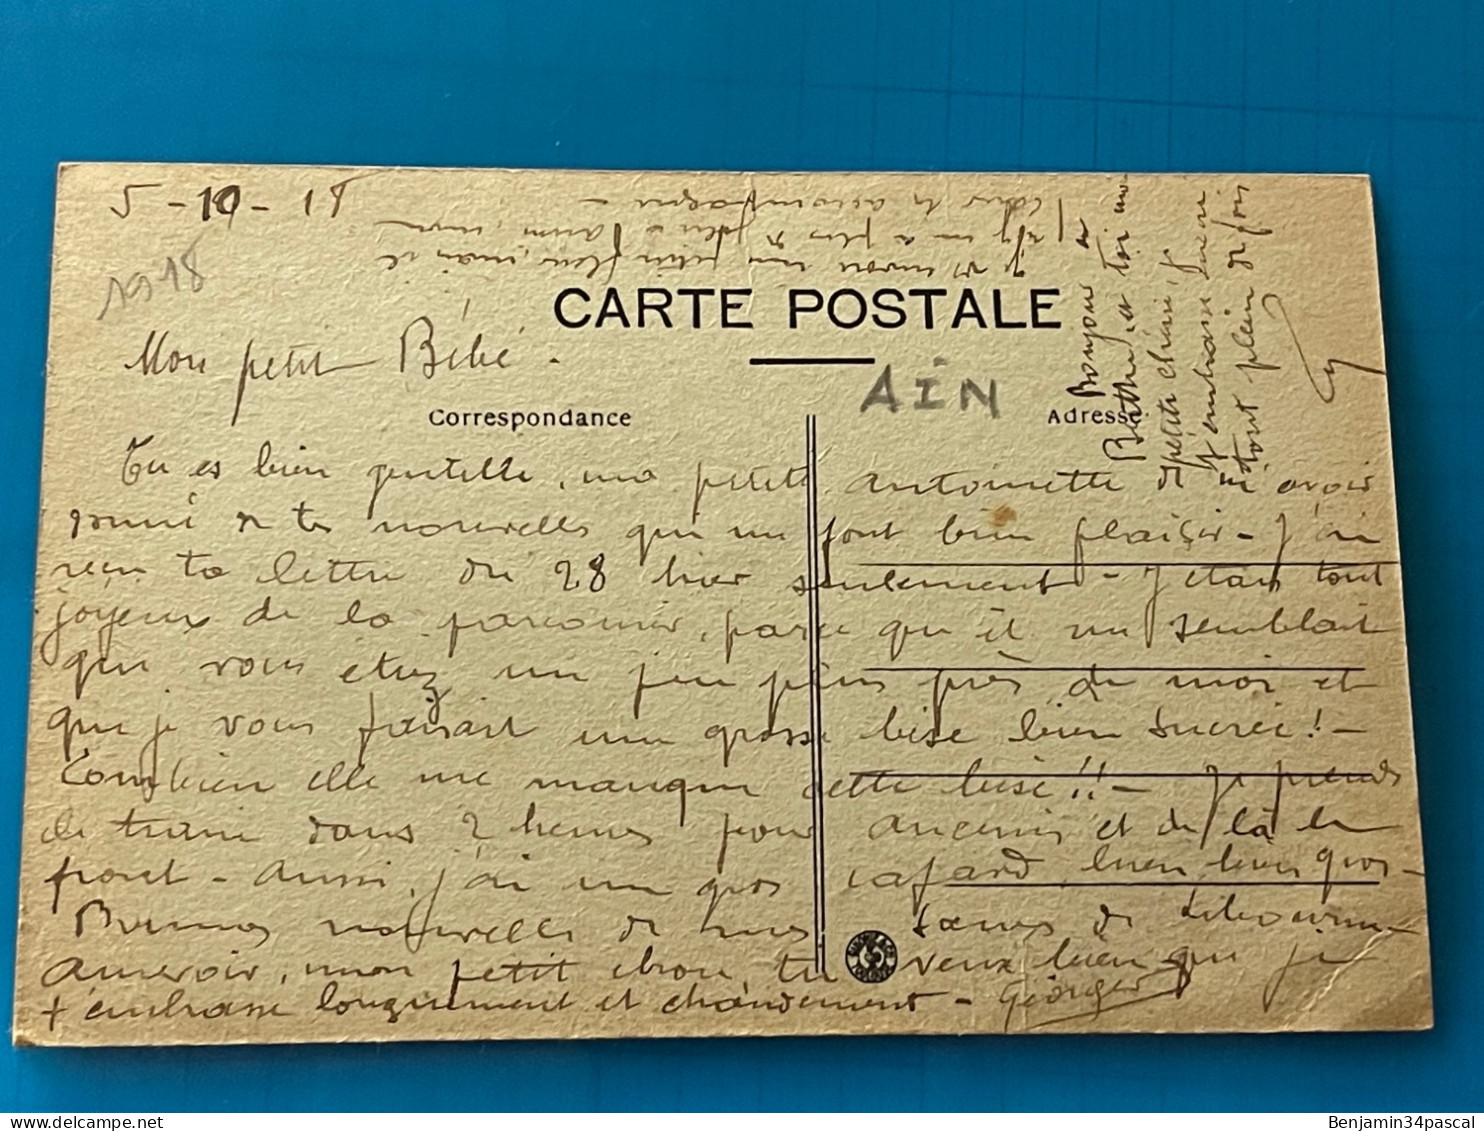 5 - 10 - 18
1918
je vs envoie une petite fleur, mais il
n'y en a plus
CARTE POSTALE
Mon petit Bébé.
AIN
Correspondance
Adresse
Bonjour
Berthe et toi
petite chérie, je
t'embrasse
tout plein de fois
Tu es bien gentille, ma petite Antoinette de m'avoir
donné de tes nouvelles qui me font bien plaisir - J'ai
reçu ta lettre du 28 hier seulement - J'étais tout
joyeux de la parcourir, parce qu'il me semblait
que vous étiez un peu plus près de moi et
que je vous faisait une grosse bise bien sucrée ! -
Combien elle me manque cette bise !! - Je prends
le train dans 2 heures pour Ancenis et de là le
front - aussi, j'ai un gros cafard bien bien gros -
Bonnes nouvelles de mes sœurs de Libourne -
Au revoir, mon petit chou tu veux bien que je
t'embrasse longuement et chaudement - Georges